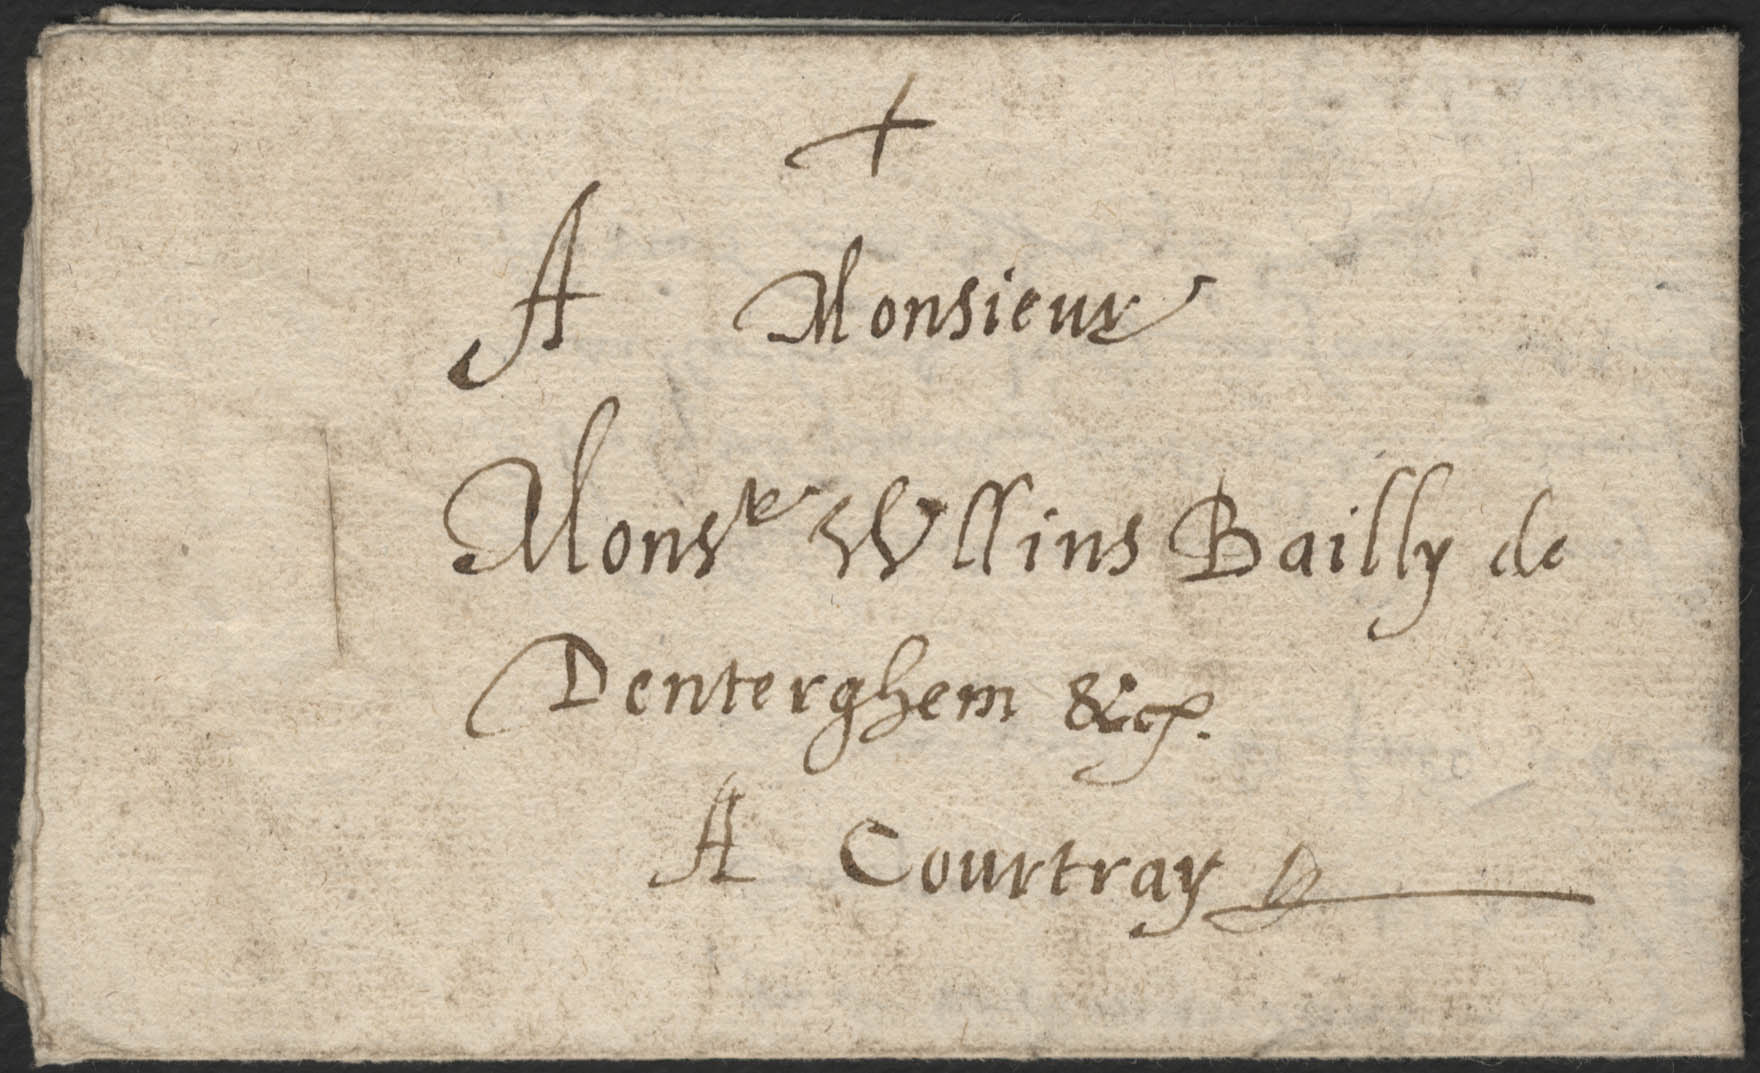 +
A Monsieur
Monsr Wllins Bailly de
Denterghem &c.
A Courtray